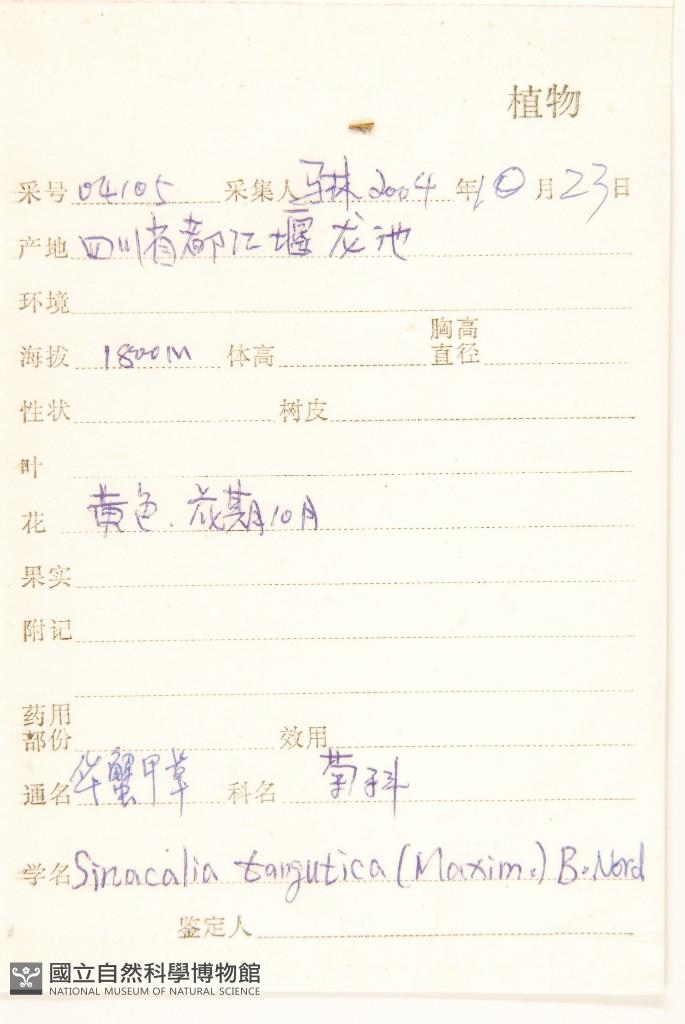 植物
采号 04105 采集人 马林 2004 年 10 月 23 日
产地 四川省都江堰龙池
环境
海拨 1800M 体高 胸高直径
性状 树皮
叶
花 黄色. 花期10月
果实
附记
药用部份 效用
通名 华蟹甲草 科名 菊科
学名 Sinacalia tangutica (Maxim.) B. Nord
鉴定人
國立自然科學博物館
NATIONAL MUSEUM OF NATURAL SCIENCE